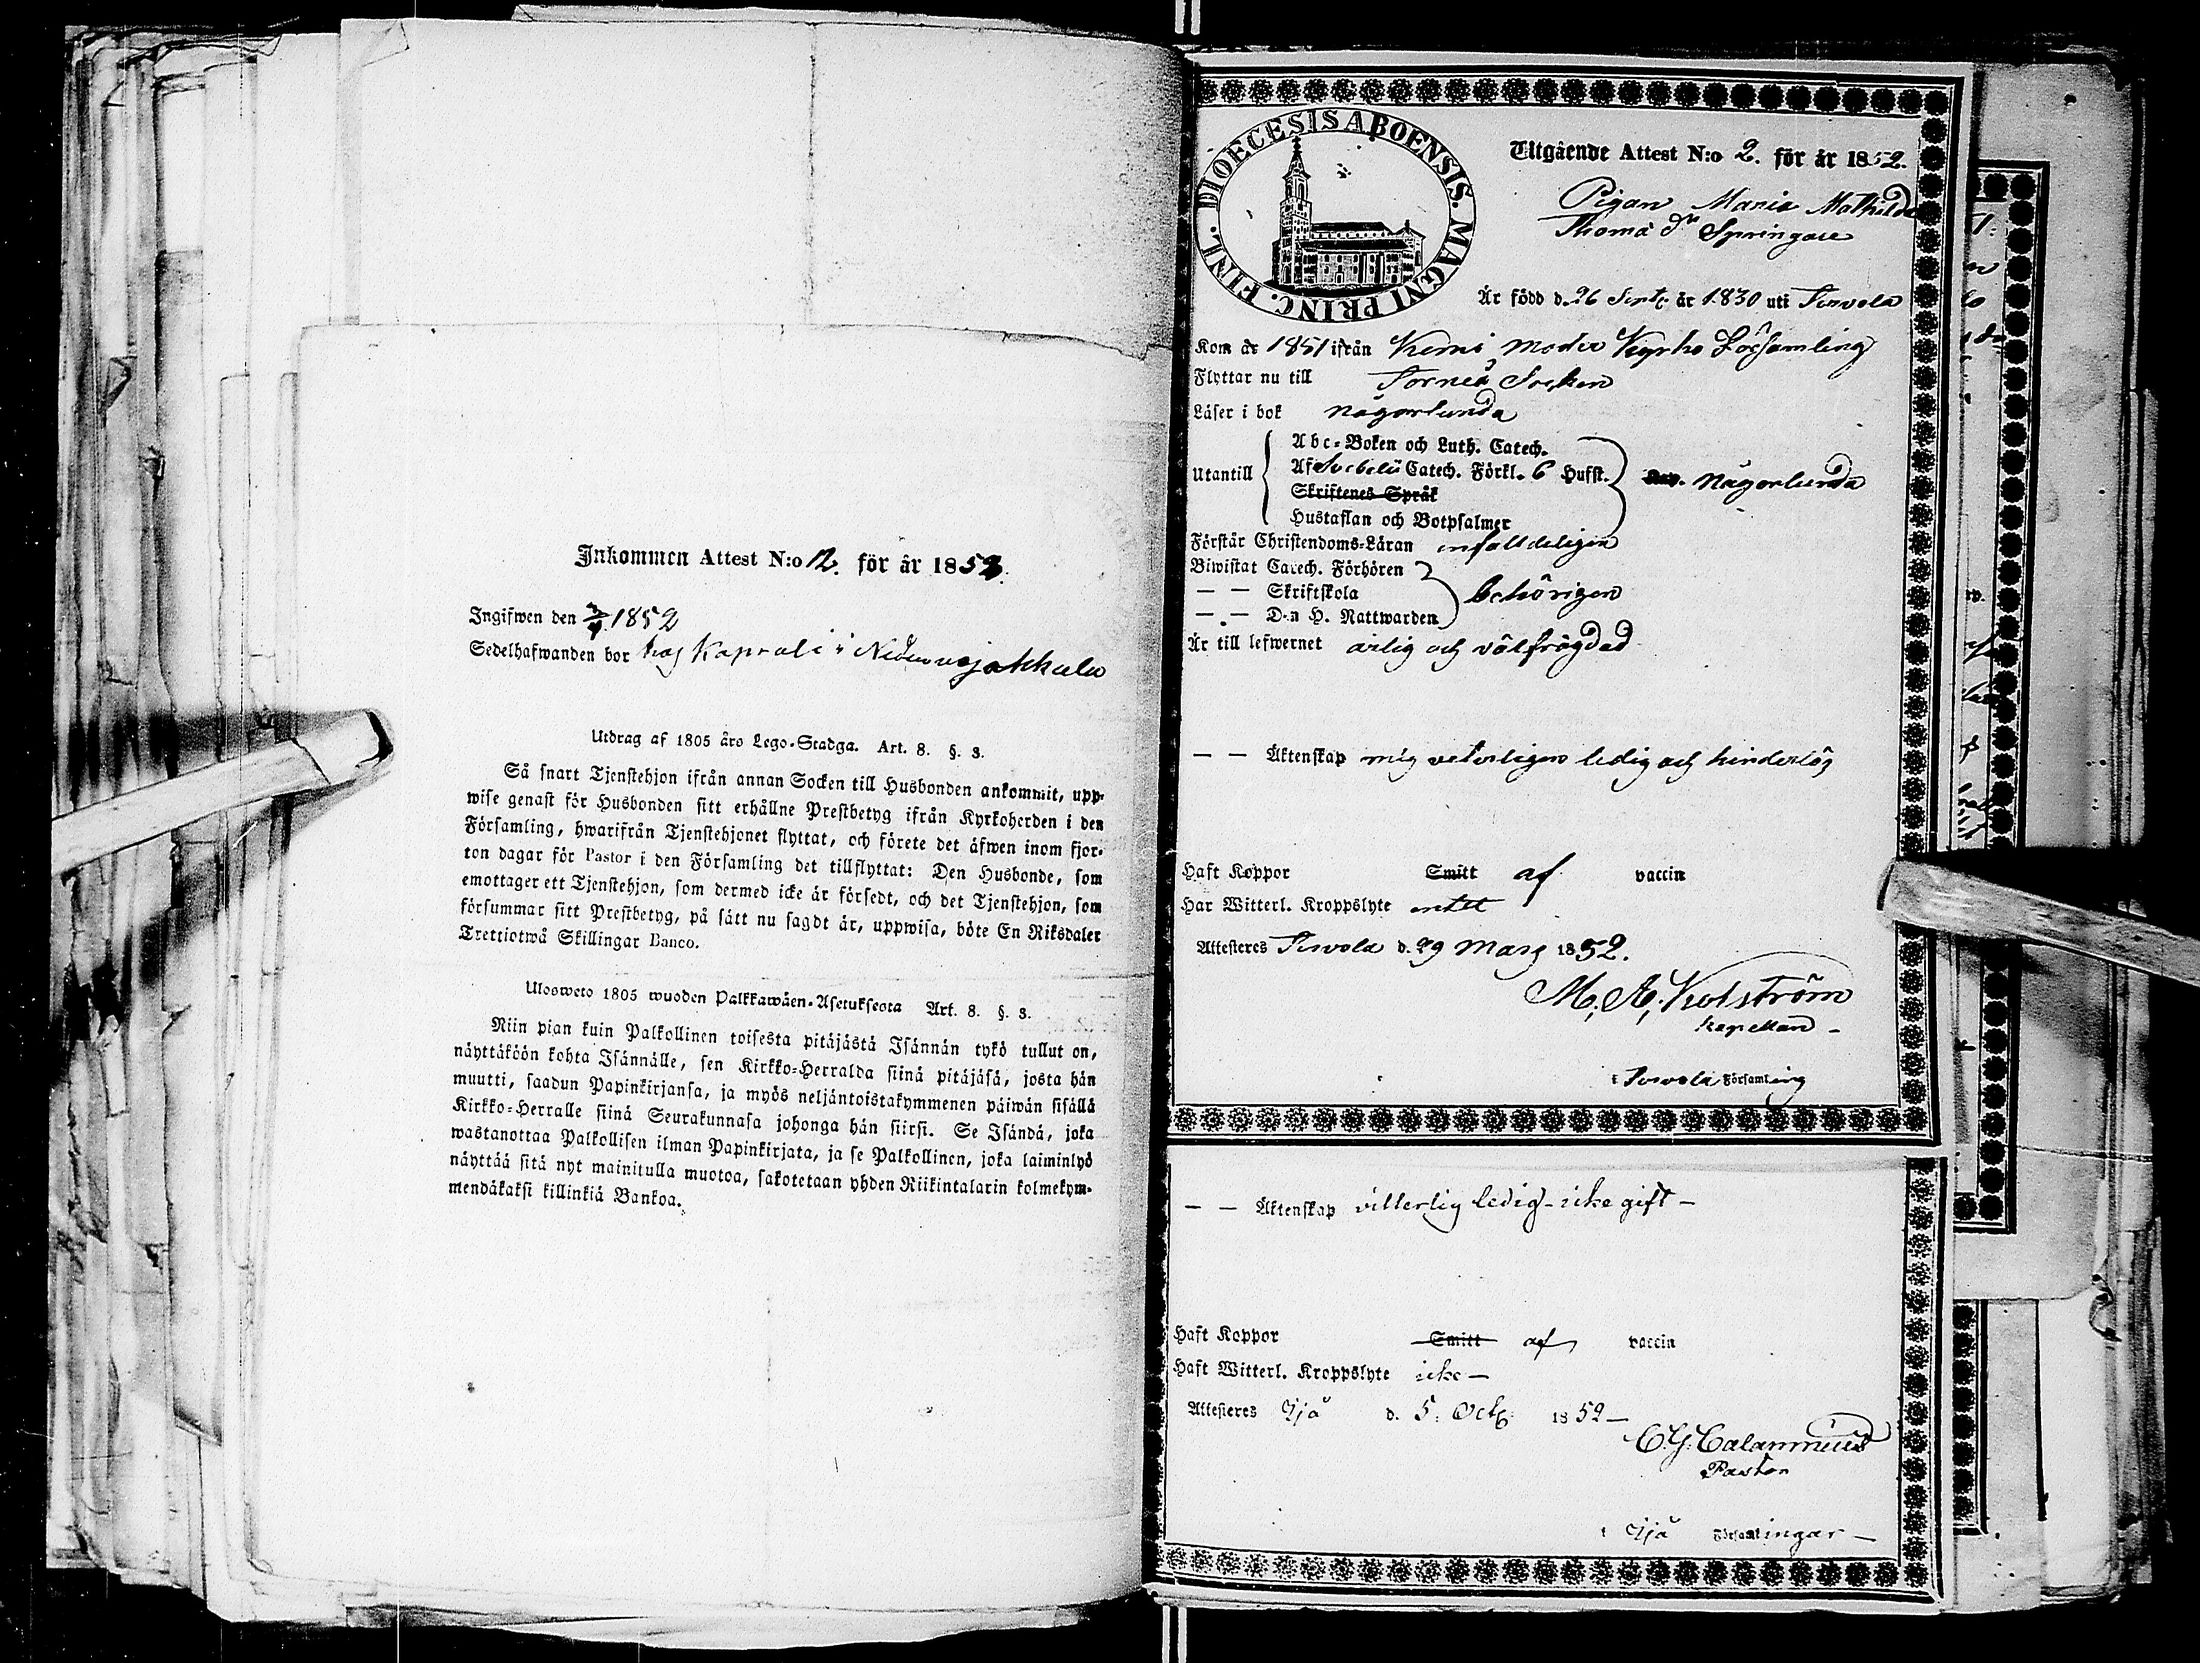 Inkommen Attest N:o 12. för år 1852.
Ingifwen den 3/4 1852
Sedelhafwanden bor hos Kaprali i Nedervojakkala
Utdrag af 1805 års Lego-Stadga. Art. 8. §. 3.
Så snart Tjenstehjon ifrån annan Socken till Husbonden ankommit, upp-
wise genast för Husbonden sitt erhållne Prestbetyg ifrån Kyrkoherden i den
Församling, hwarifrån Tjenstehjonet flyttat, och förete det äfwen inom fjor-
ton dagar för Pastor i den Församling det tillflyttat: Den Husbonde, som
emottager ett Tjenstehjon, som dermed icke är försedt, och det Tjenstehjon, som
försummar sitt Prestbetyg, på sätt nu sagdt är, uppwisa, böte En Riksdaler
Trettiotwå Skillingar Banco.
Ulosweto 1805 wuoden Palkkawäen-Asetuksesta Art. 8. §. 3.
Niin pian kuin Palkollinen toisesta pitäjästä Isännän tykö tullut on,
näyttäköön kohta Isännälle, sen Kirkko-Herralda siinä pitäjäsä, josta hän
muutti, saadun Papinkirjansa, ja myös neljäntoistakymmenen päiwän sisällä
Kirkko-Herralle siinä Seurakunnasa johonga hän siirsi. Se Isändä, joka
wastanottaa Palkollisen ilman Papinkirjata, ja se Palkollinen, joka laiminlyö
näyttää sitä nyt mainitulla muotoa, sakotetaan yhden Riikintalarin kolmekym-
mendäkaksi killinkiä Bankoa.
DIOECESIS ABOENSIS. MAGNI PRINC. FINL.
Utgående Attest N:o 2. för år 1852.
Pigan Maria Mathilda
Thomä dr Springare
Är född d. 26 Septr år 1830 uti Tervola
Kom år 1851 ifrån Kemi Moder Kyrko Församling
Flyttar nu till Torneå Socken
Läser i bok någorlunda
Utantill
Abc-Boken och Luth. Catech.
Af Svebelii Catech. Förkl. 6 Hufst.
Skriftenes Språk
Hustaflan och Botpsalmer
någorlunda
Förstår Christendoms-Läran enfalldeligen
Biwistat Catech. Förhören
— — Skriftskola
— — D-n H. Nattwarden
behörigen
Är till lefwernet ärlig och välfrägdad
— — Äktenskap mig veterligen ledig och hinderlös
Haft Koppor Smitt af vaccin
Har Witterl. Kroppslyte intet
Attesteres Tervola d. 29 Mars 1852.
M. A. Kolström
Kapellan —
i Tervola Församling
— — Äktenskap vitterlig ledig - icke gift —
Haft Koppor Smitt af vaccin
Haft Witterl. Kroppslyte icke —
Attesteres Ijå d. 5. Octb. 1852 —
C. G. Calamnius
Pastor
i Ijå Församlingar —